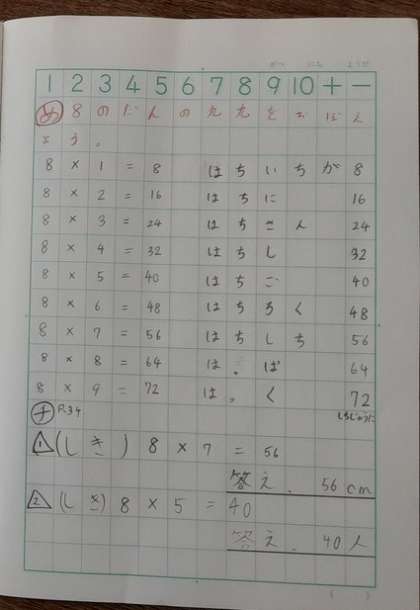 がつ にち ようび
1 2 3 4 5 6 7 8 9 10 + −
め 8のだんの九九をおぼえ
よう。
8 × 1 = 8 はちいちが 8
8 × 2 = 16 はちに 16
8 × 3 = 24 はちさん 24
8 × 4 = 32 はちし 32
8 × 5 = 40 はちご 40
8 × 6 = 48 はちろく 48
8 × 7 = 56 はちしち 56
8 × 8 = 64 は ば 64
8 × 9 = 72 は く 72
P.34 しちじゅうに
1 (しき) 8 × 7 = 56
答え. 56cm
2 (しき) 8 × 5 = 40
答え. 40人